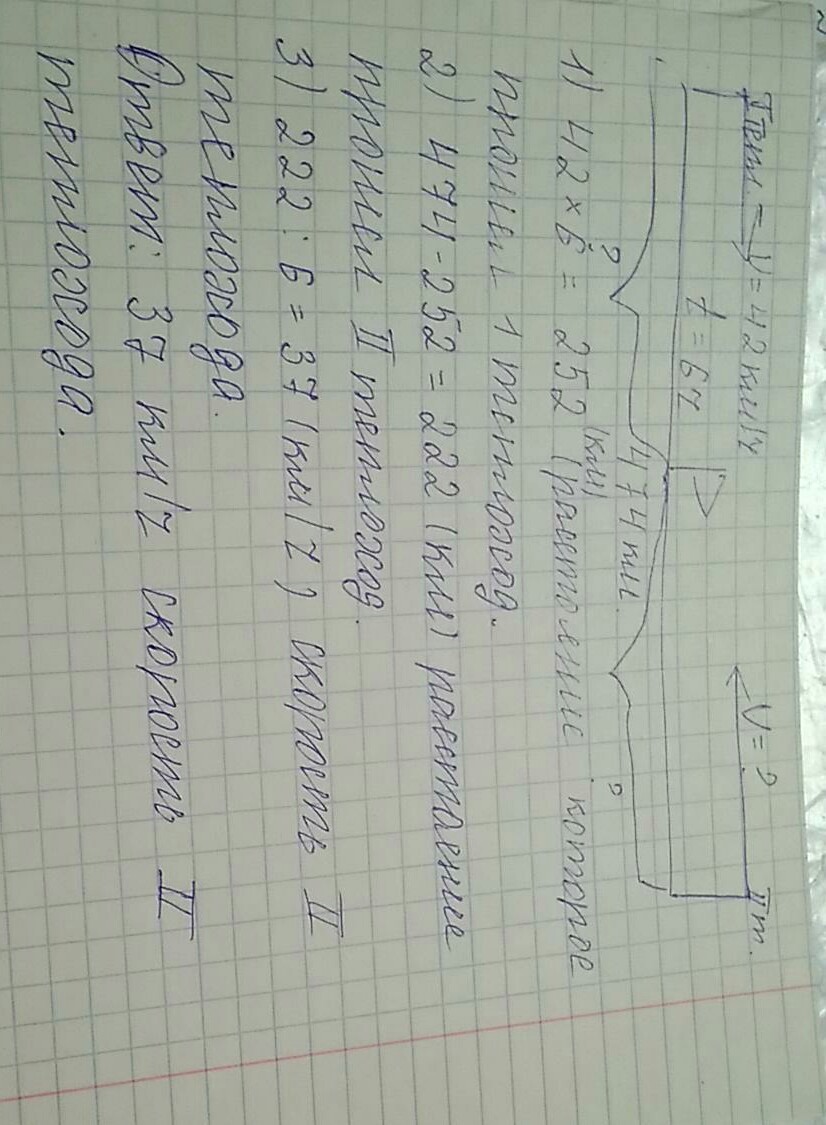 I теп. V=42 км/ч V=? II т.
t=6ч
474 км.
? ?
1) 42×6= 252 (км) (расстояние которое
прошел 1 теплоход.
2) 474-252=222 (км) расстояние
прошел II теплоход.
3) 222:6=37 (км/ч) скорость II
теплохода.
Ответ: 37 км/ч скорость II
теплохода.